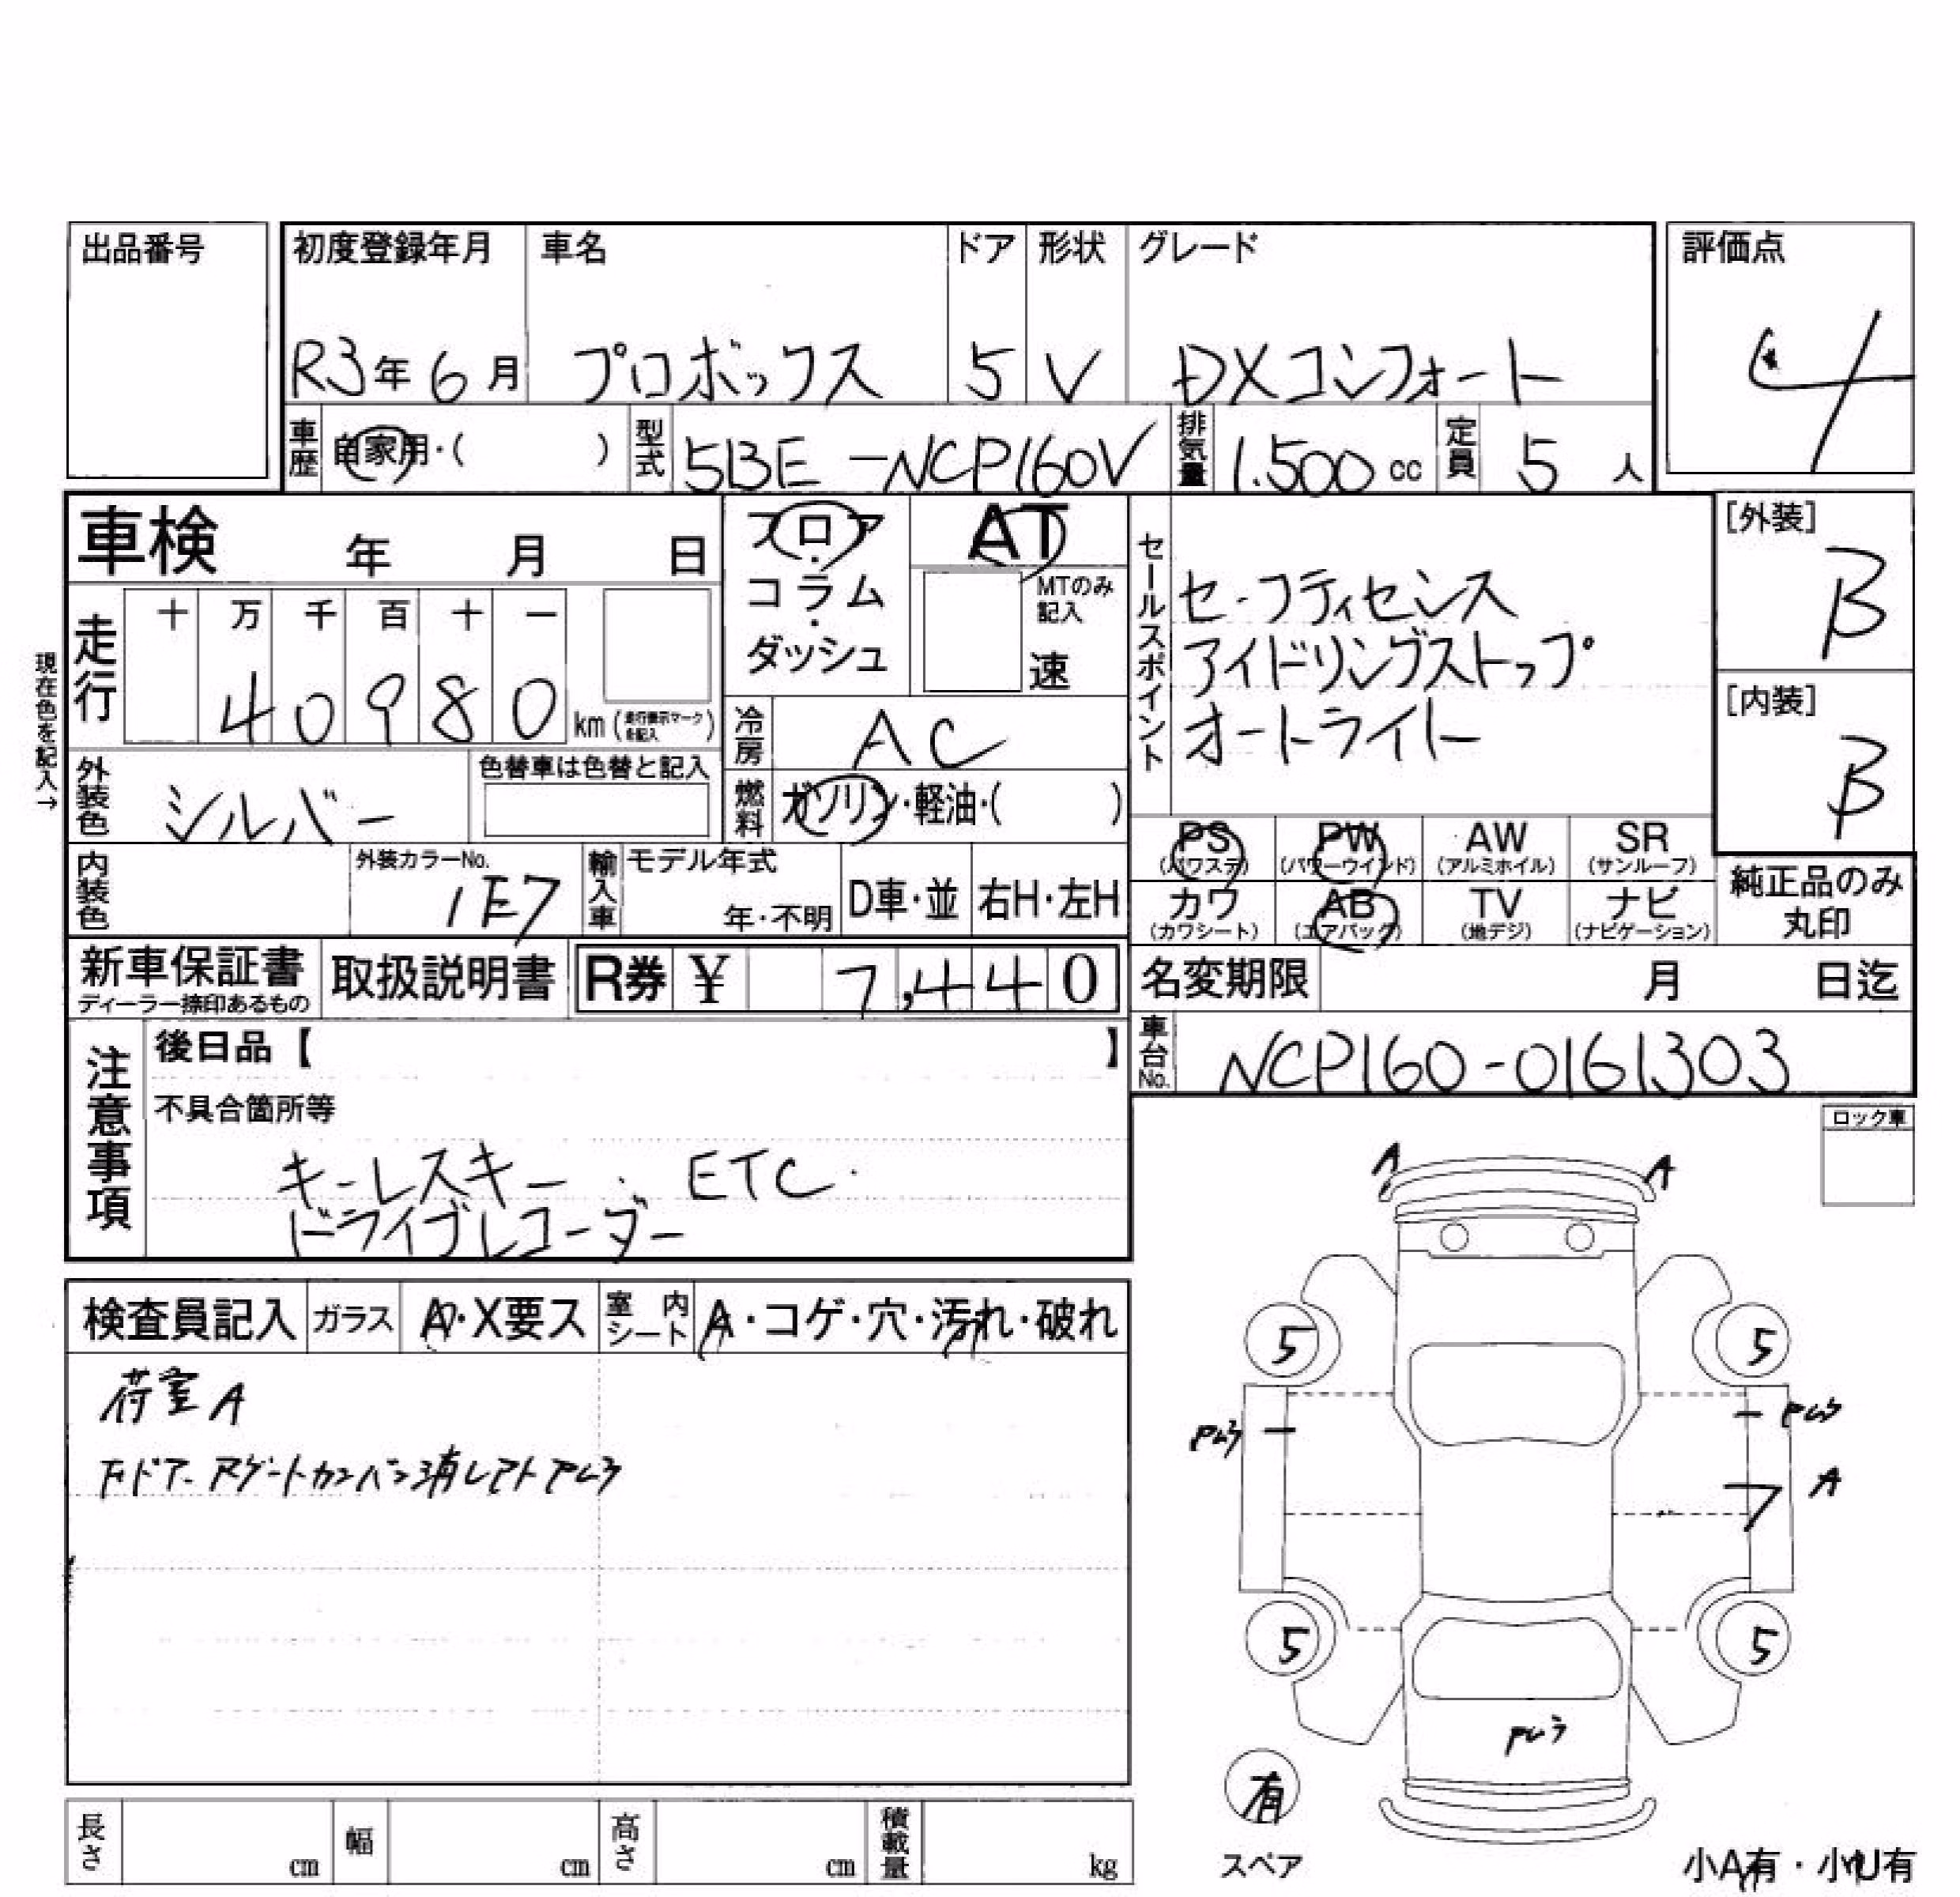 出品番号
初度登録年月 車名 ドア 形状 グレード
R3年6月 プロボックス 5 V DXコンフォート
評価点
4
車歴 自家用・( ) 型式 5BE-NCP160V 排気量 1.500cc 定員 5人
車検 年 月 日
フロア・コラム・ダッシュ
AT
MTのみ記入
速
セールスポイント
セーフティセンス
アイドリングストップ
オートライト
[外装]
B
[内装]
B
現在色を記入→
走行 十 万 千 百 十 一
40980 km (走行表示マークを記入)
冷房 AC
外装色 シルバー 色替車は色替と記入
燃料 ガソリン・軽油・( )
PS (パワステ) PW (パワーウインド) AW (アルミホイル) SR (サンルーフ)
カワ (カワシート) AB (エアバック) TV (地デジ) ナビ (ナビゲーション)
純正品のみ丸印
内装色 外装カラーNo. 1E7 輸入車 モデル年式 年・不明 D車・並 右H・左H
新車保証書 ディーラー捺印あるもの 取扱説明書 R券 ¥ 7,440
名変期限 月 日迄
車台No. NCP160-0161303
注意事項
後日品【 】
不具合箇所等
キーレスキー ETC
ドライブレコーダー
ロック車
検査員記入 ガラス A・X要ス 室内シート A・コゲ・穴・汚れ・破れ
荷室A
A A
5 5
A
5 5
有
スペア
小A有・小U有
長さ cm 幅 cm 高さ cm 積載量 kg